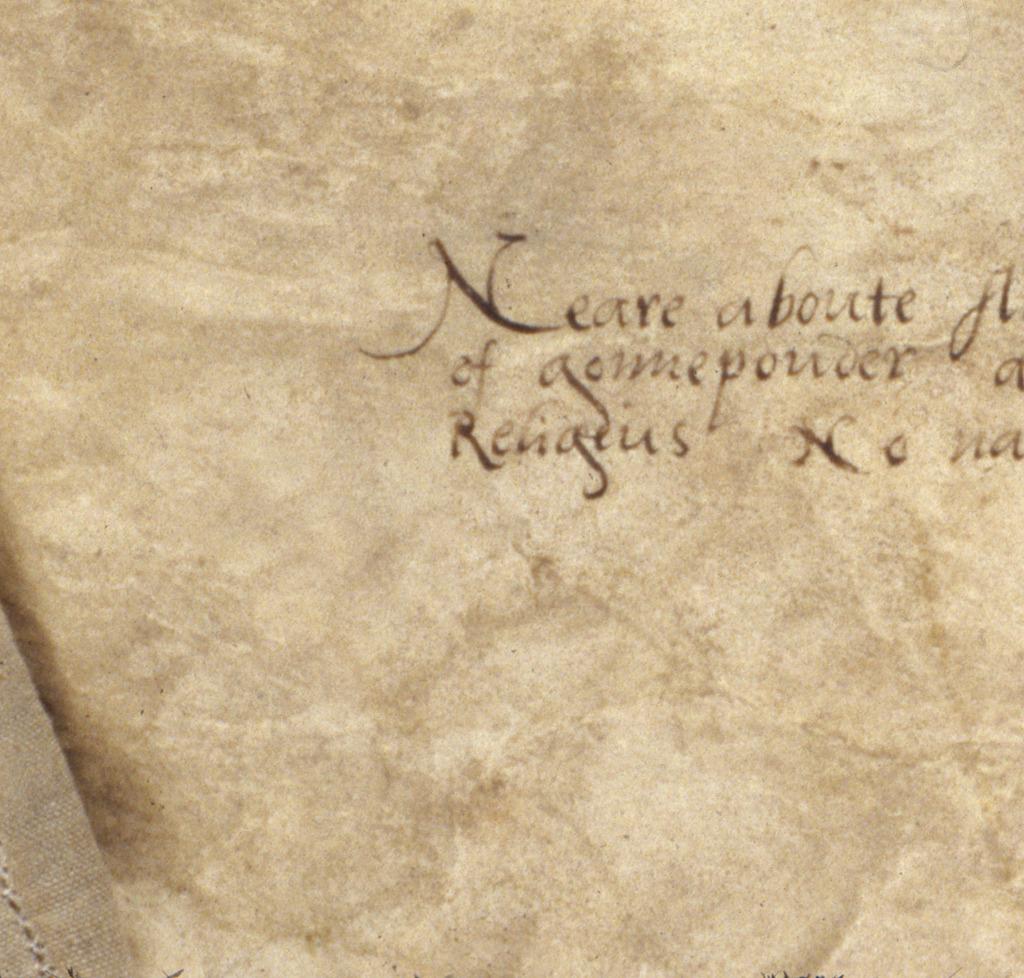 Neare aboute
of gonnepouder
Religius No